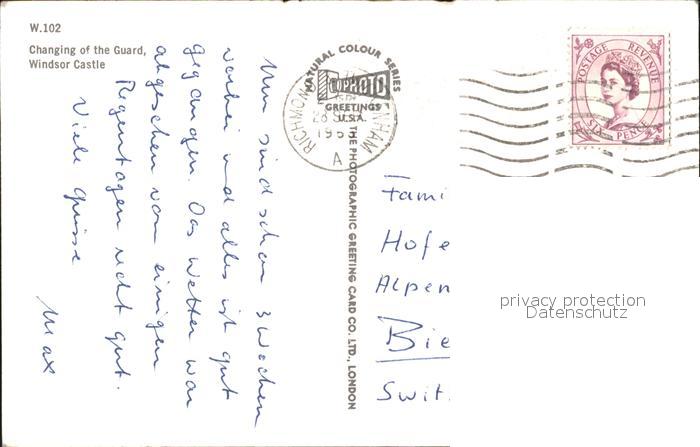 W.102
Changing of the Guard,
Windsor Castle
Nun sind schon 3 Wochen
vorbei und alles ist gut
gegangen. Das Wetter war
abgesehen von einigen
Regentagen recht gut.
Viele Grüsse
Max
NATURAL COLOUR SERIES
PHOTO
GREETINGS
U.S.A.
THE PHOTOGRAPHIC GREETING CARD CO., LTD., LONDON
RICHMON
NHAM
28
196
A
POSTAGE REVENUE
SIX PENCE
Fami
Hofe
Alpen
Bie
Swit
privacy protection
Datenschutz